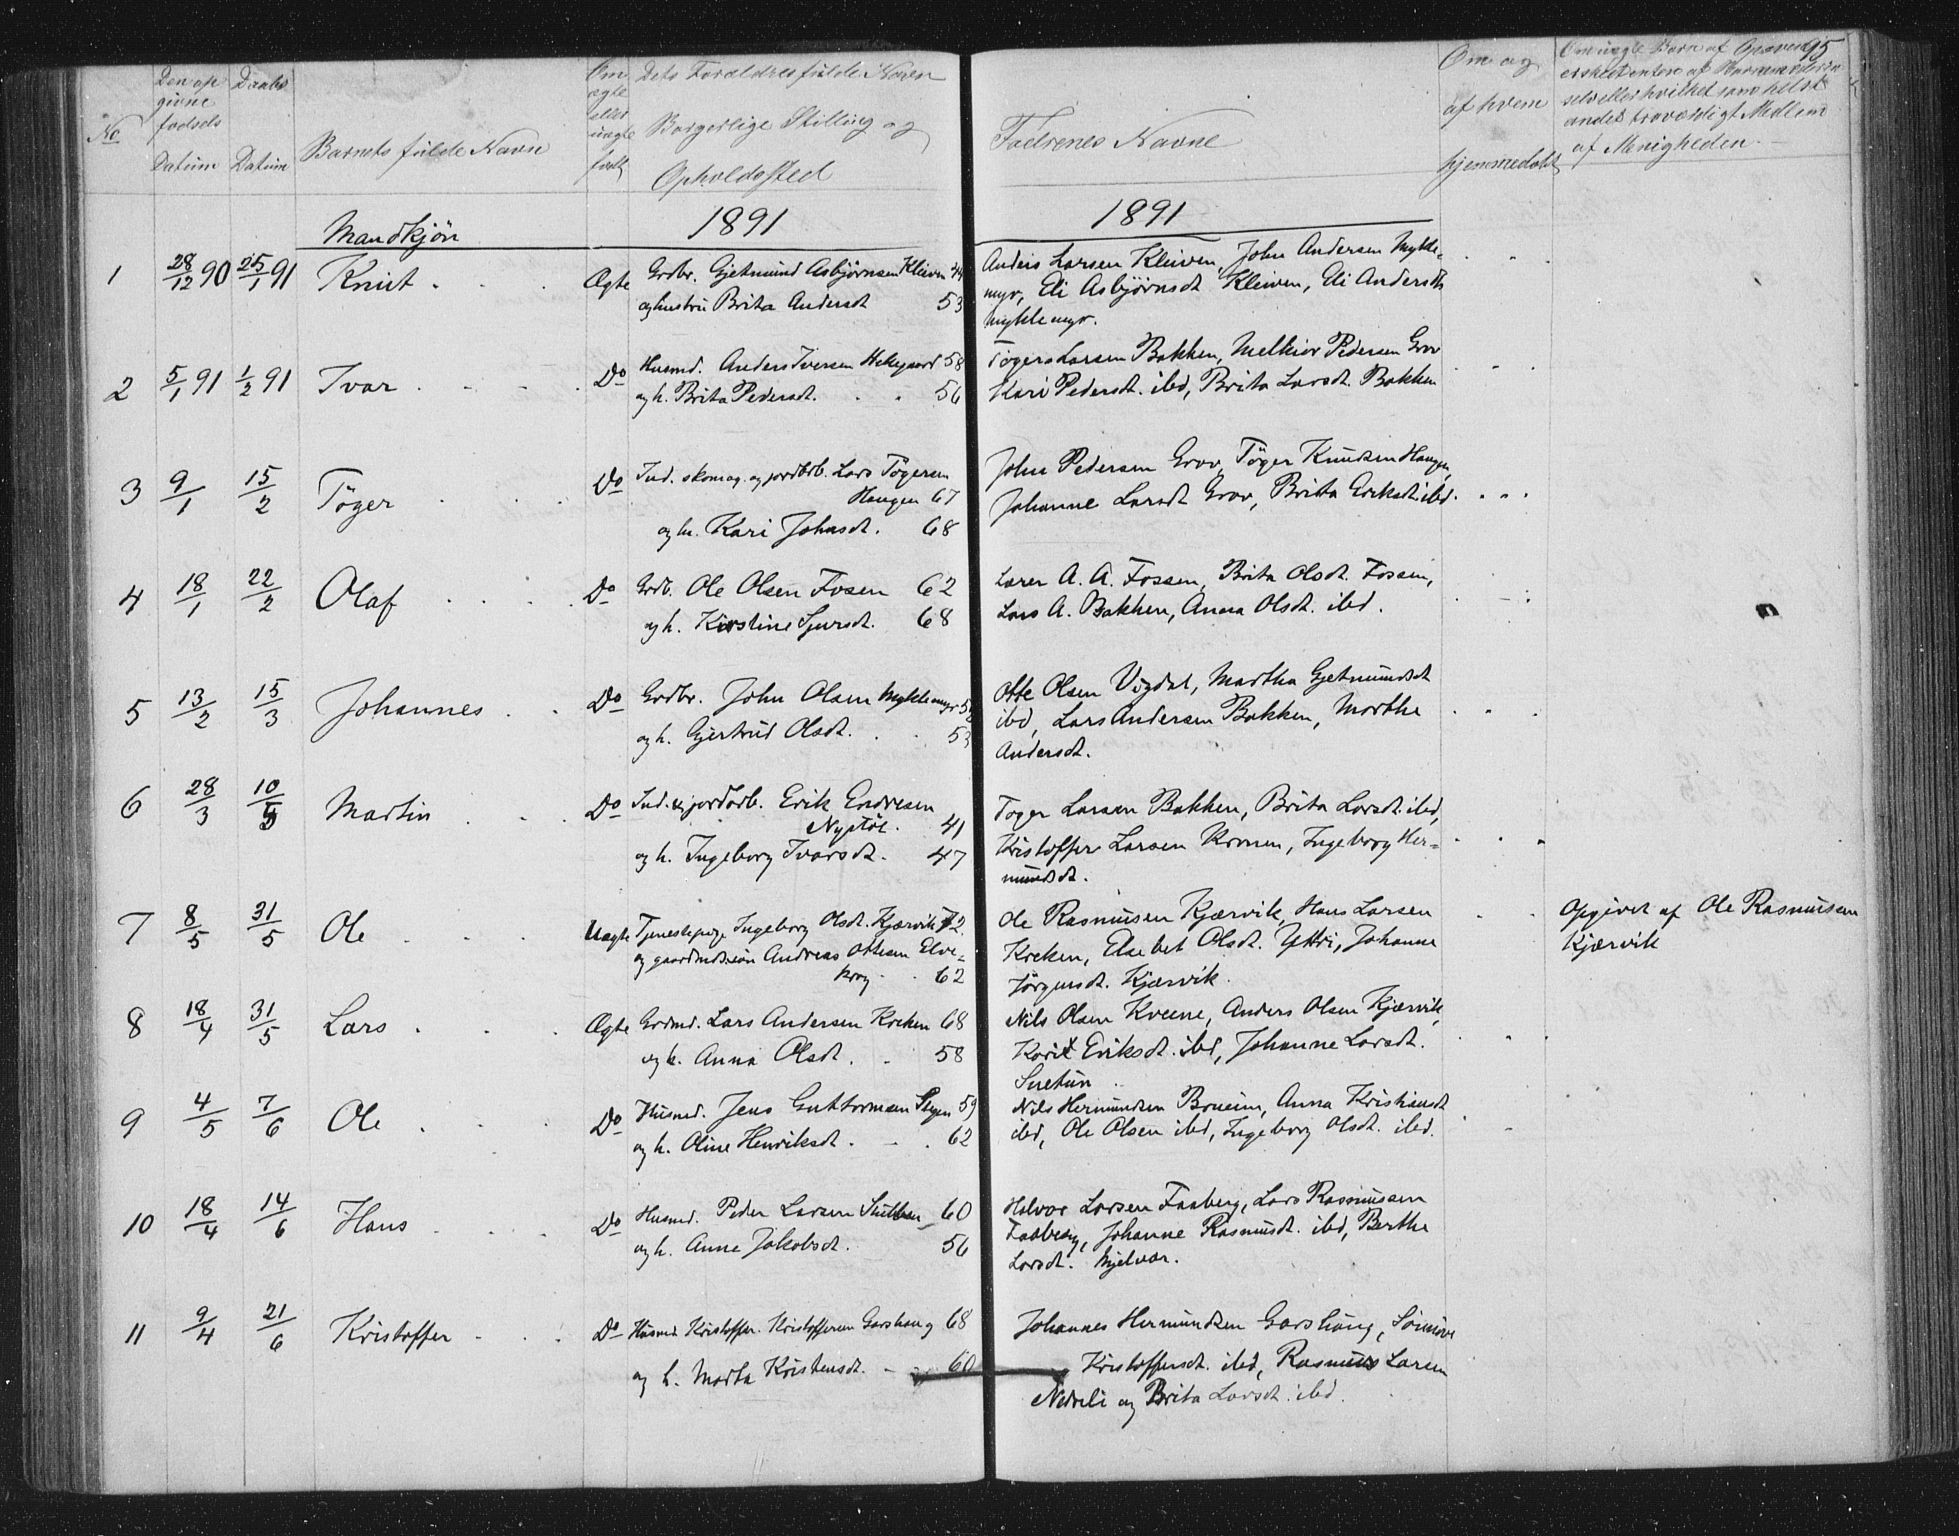 No
Den op givne fødsels Datum
Daabs Datum
Barnets fulde Navn
Om ægte eller uægte født
Dets Forældres fulde Navn
Borgerlige Stilling og
Opholdssted
Fadrenes Navne
Om og af hvem hjemmedøbt
95
af Menigheden.
Mandkjön
1891
1891
1 28/12 90 25/1 91 Knut Ægte Grdbr. Gjetmund Asbjørnsen Kleiven 44
og hustru Brita Andersdt 53
Anders Larsen Kleiven, John Andersen Mykle-
myr, Eli Asbjörnsdt Kleiven, Eli Andersdt
Myklemyr.
2 5/1 91 1/2 91 Ivar Do Husmd. Anders Iversen 58
og h. Brita Pedersdt. 56
Töger Larsen Bakken, Melkior Pedersen Grov
Kari Pedersdt. ibd, Brita Larsdt. Bakken
3 9/1 15/2 Töger Do Ind. skomag. og jordbrb. Lars Tögersen
Haugen 67
og h. Kari Johnsdt. 68
John Pedersen Grov, Töger Knudsen Haugen,
Johanne Larsdt Grov, Brita Eriksdt. ibd.
4 18/1 22/2 Olaf Do Grdb. Ole Olsen Fosen 62
og h. Kirstine Sjursdt. 68
Lærer A. A. Fossen, Brita Olsdt. Fossen,
Lars A. Bakken, Anna Olsdt. ibd.
5 13/2 15/3 Johannes Do Grdbr. John Olsen Myklemyr
og h. Gjertrud Olsdt. 53
Otte Olsen Vigdal, Martha Gjetmundsdt
ibd, Lars Andersen Bakken, Marthe
Andersdt.
6 28/3 10/5 Martin Do Ind. & jordarb. Erik Endresen
Nystöl. 41
og h. Ingeborg Ivarsdt. 47
Töger Larsen Bakken, Brita Larsdt. ibd,
Kristoffer Larsen Kronen, Ingeborg Her-
mundsdt.
7 8/5 31/5 Ole Uægte Tjenestepige Ingeborg Olsdt. Kjærvik 72.
og gaardmdssön Andreas Ottesen Elve-
krog 62
Ole Rasmusen Kjærvik, Hans Larsen
Kreken, Elsebet Olsdt. Yttri, Johanne
Jörgensdt. Kjærvik.
Opgivet af Ole Rasmusen
Kjærvik
8 18/4 31/5 Lars Ægte Grdmd. Lars Andersen Kreken 68
og h. Anna Olsdt. 58
Nils Olsen Kveene, Anders Olsen Kjærvik,
Kari Eriksdt. ibd, Johanne Larsdt.
Snetun
9 4/5 7/6 Ole Do Husmd. Jens Guttormsen 59
og h. Oline Henriksdt. 62
Nils Hermundsen Brueim, Anna Kristiansdt
ibd, Ole Olsen ibd, Ingeborg Olsdt. ibd.
10 18/4 14/6 Hans Do Husmd. Peder Larsen 60
og h. Anne Jakobsdt. 56
Halvor Larsen Faaberg, Lars Rasmussen
Faaberg, Johanne Rasmusdt. ibd, Berthe
Larsdt. Mjelvær.
11 9/4 21/6 Kristoffer Do Husmd. Kristoffer Kristoffersen Garshaug 68
og h. Marta Kristensdt. 60
Johannes Hermundsen Garshaug, Sönneve
Kristoffersdt. ibd, Rasmus Larsen
Nedreli og Brita Larsdt. ibd.